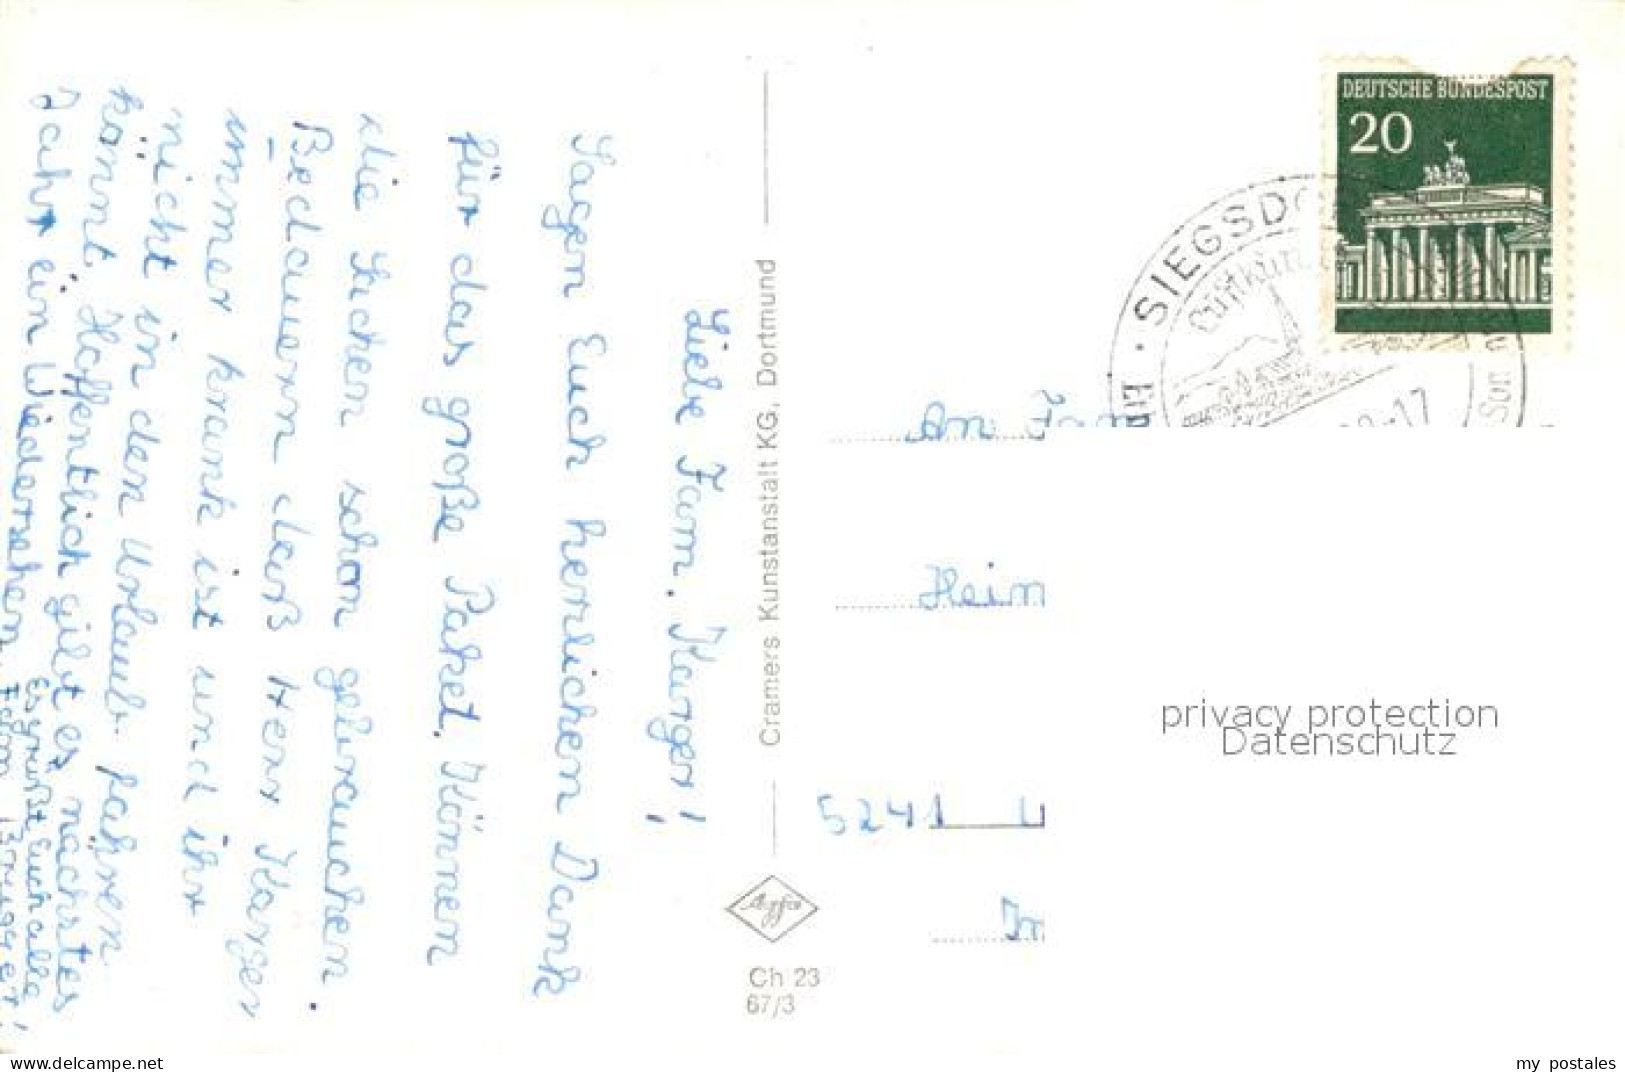 Liebe Fam. Karger!
Sagen Euch herzlichen Dank
für das große Paket. Können
die Sachen schon gebrauchen.
Bedauern daß Herr Karger
immer krank ist und ihr
nicht in den Urlaub fahren
könnt. Hoffentlich gibt es nächstes
Jahr ein Wiedersehen.
Es grüßt Euch alle
Fam.
Cramers Kunstanstalt KG, Dortmund
Agfa
Ch 23
67/3
DEUTSCHE BUNDESPOST
20
SIEGSDO
Luftkur
-17
An Fam
Hein
5241
Im
privacy protection
Datenschutz
www.delcampe.net
my_postales